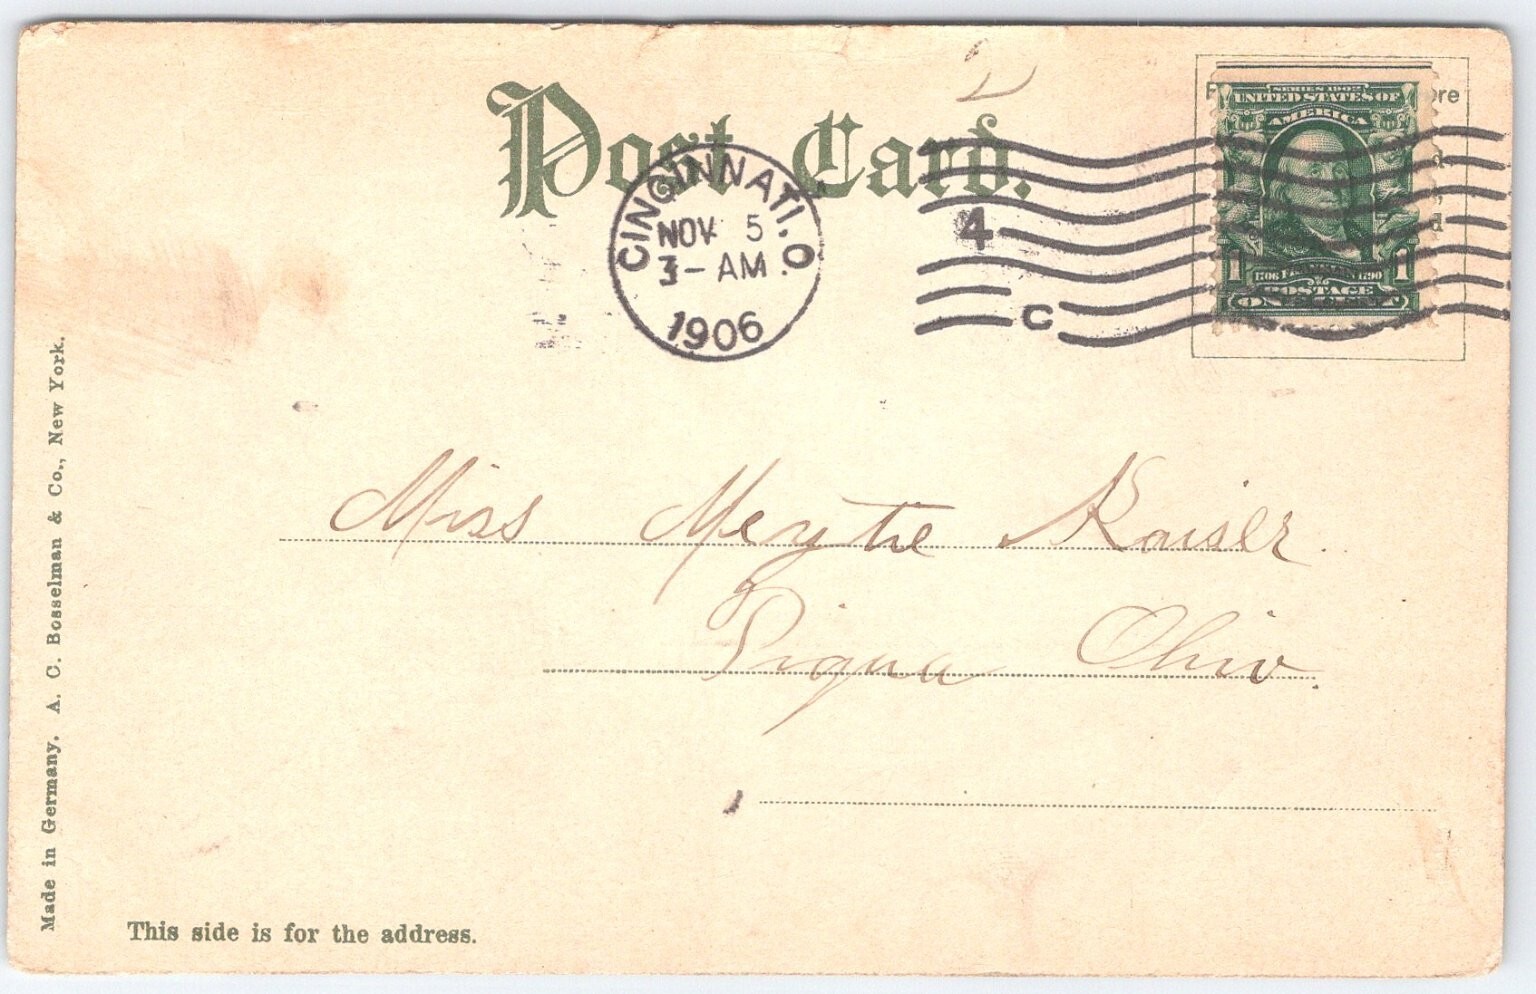 Post Card.
2
CINCINNATI, O.
NOV 5
3-AM
1906
4
C
SERIES 1902
UNITED STATES OF
AMERICA
1 1706 FRANKLIN 1790 1
POSTAGE
ONE CENT
Miss Myrtie Kaiser.
Piqua Ohio.
Made in Germany. A. C. Bosselman & Co., New York.
This side is for the address.